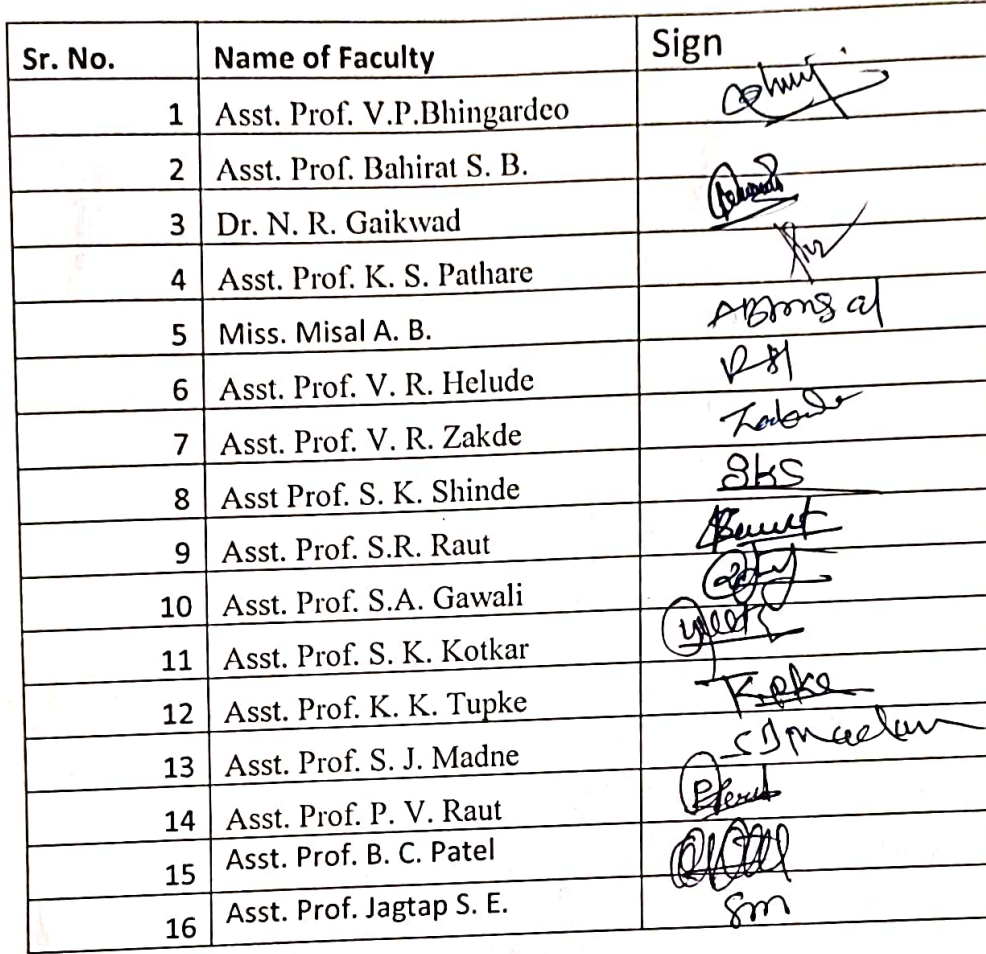 Sr. No. Name of Faculty Sign
1 Asst. Prof. V.P.Bhingardeo
2 Asst. Prof. Bahirat S. B.
3 Dr. N. R. Gaikwad
4 Asst. Prof. K. S. Pathare
5 Miss. Misal A. B.
6 Asst. Prof. V. R. Helude
7 Asst. Prof. V. R. Zakde
8 Asst Prof. S. K. Shinde SKS
9 Asst. Prof. S.R. Raut
10 Asst. Prof. S.A. Gawali
11 Asst. Prof. S. K. Kotkar
12 Asst. Prof. K. K. Tupke
13 Asst. Prof. S. J. Madne
14 Asst. Prof. P. V. Raut
15 Asst. Prof. B. C. Patel
16 Asst. Prof. Jagtap S. E.